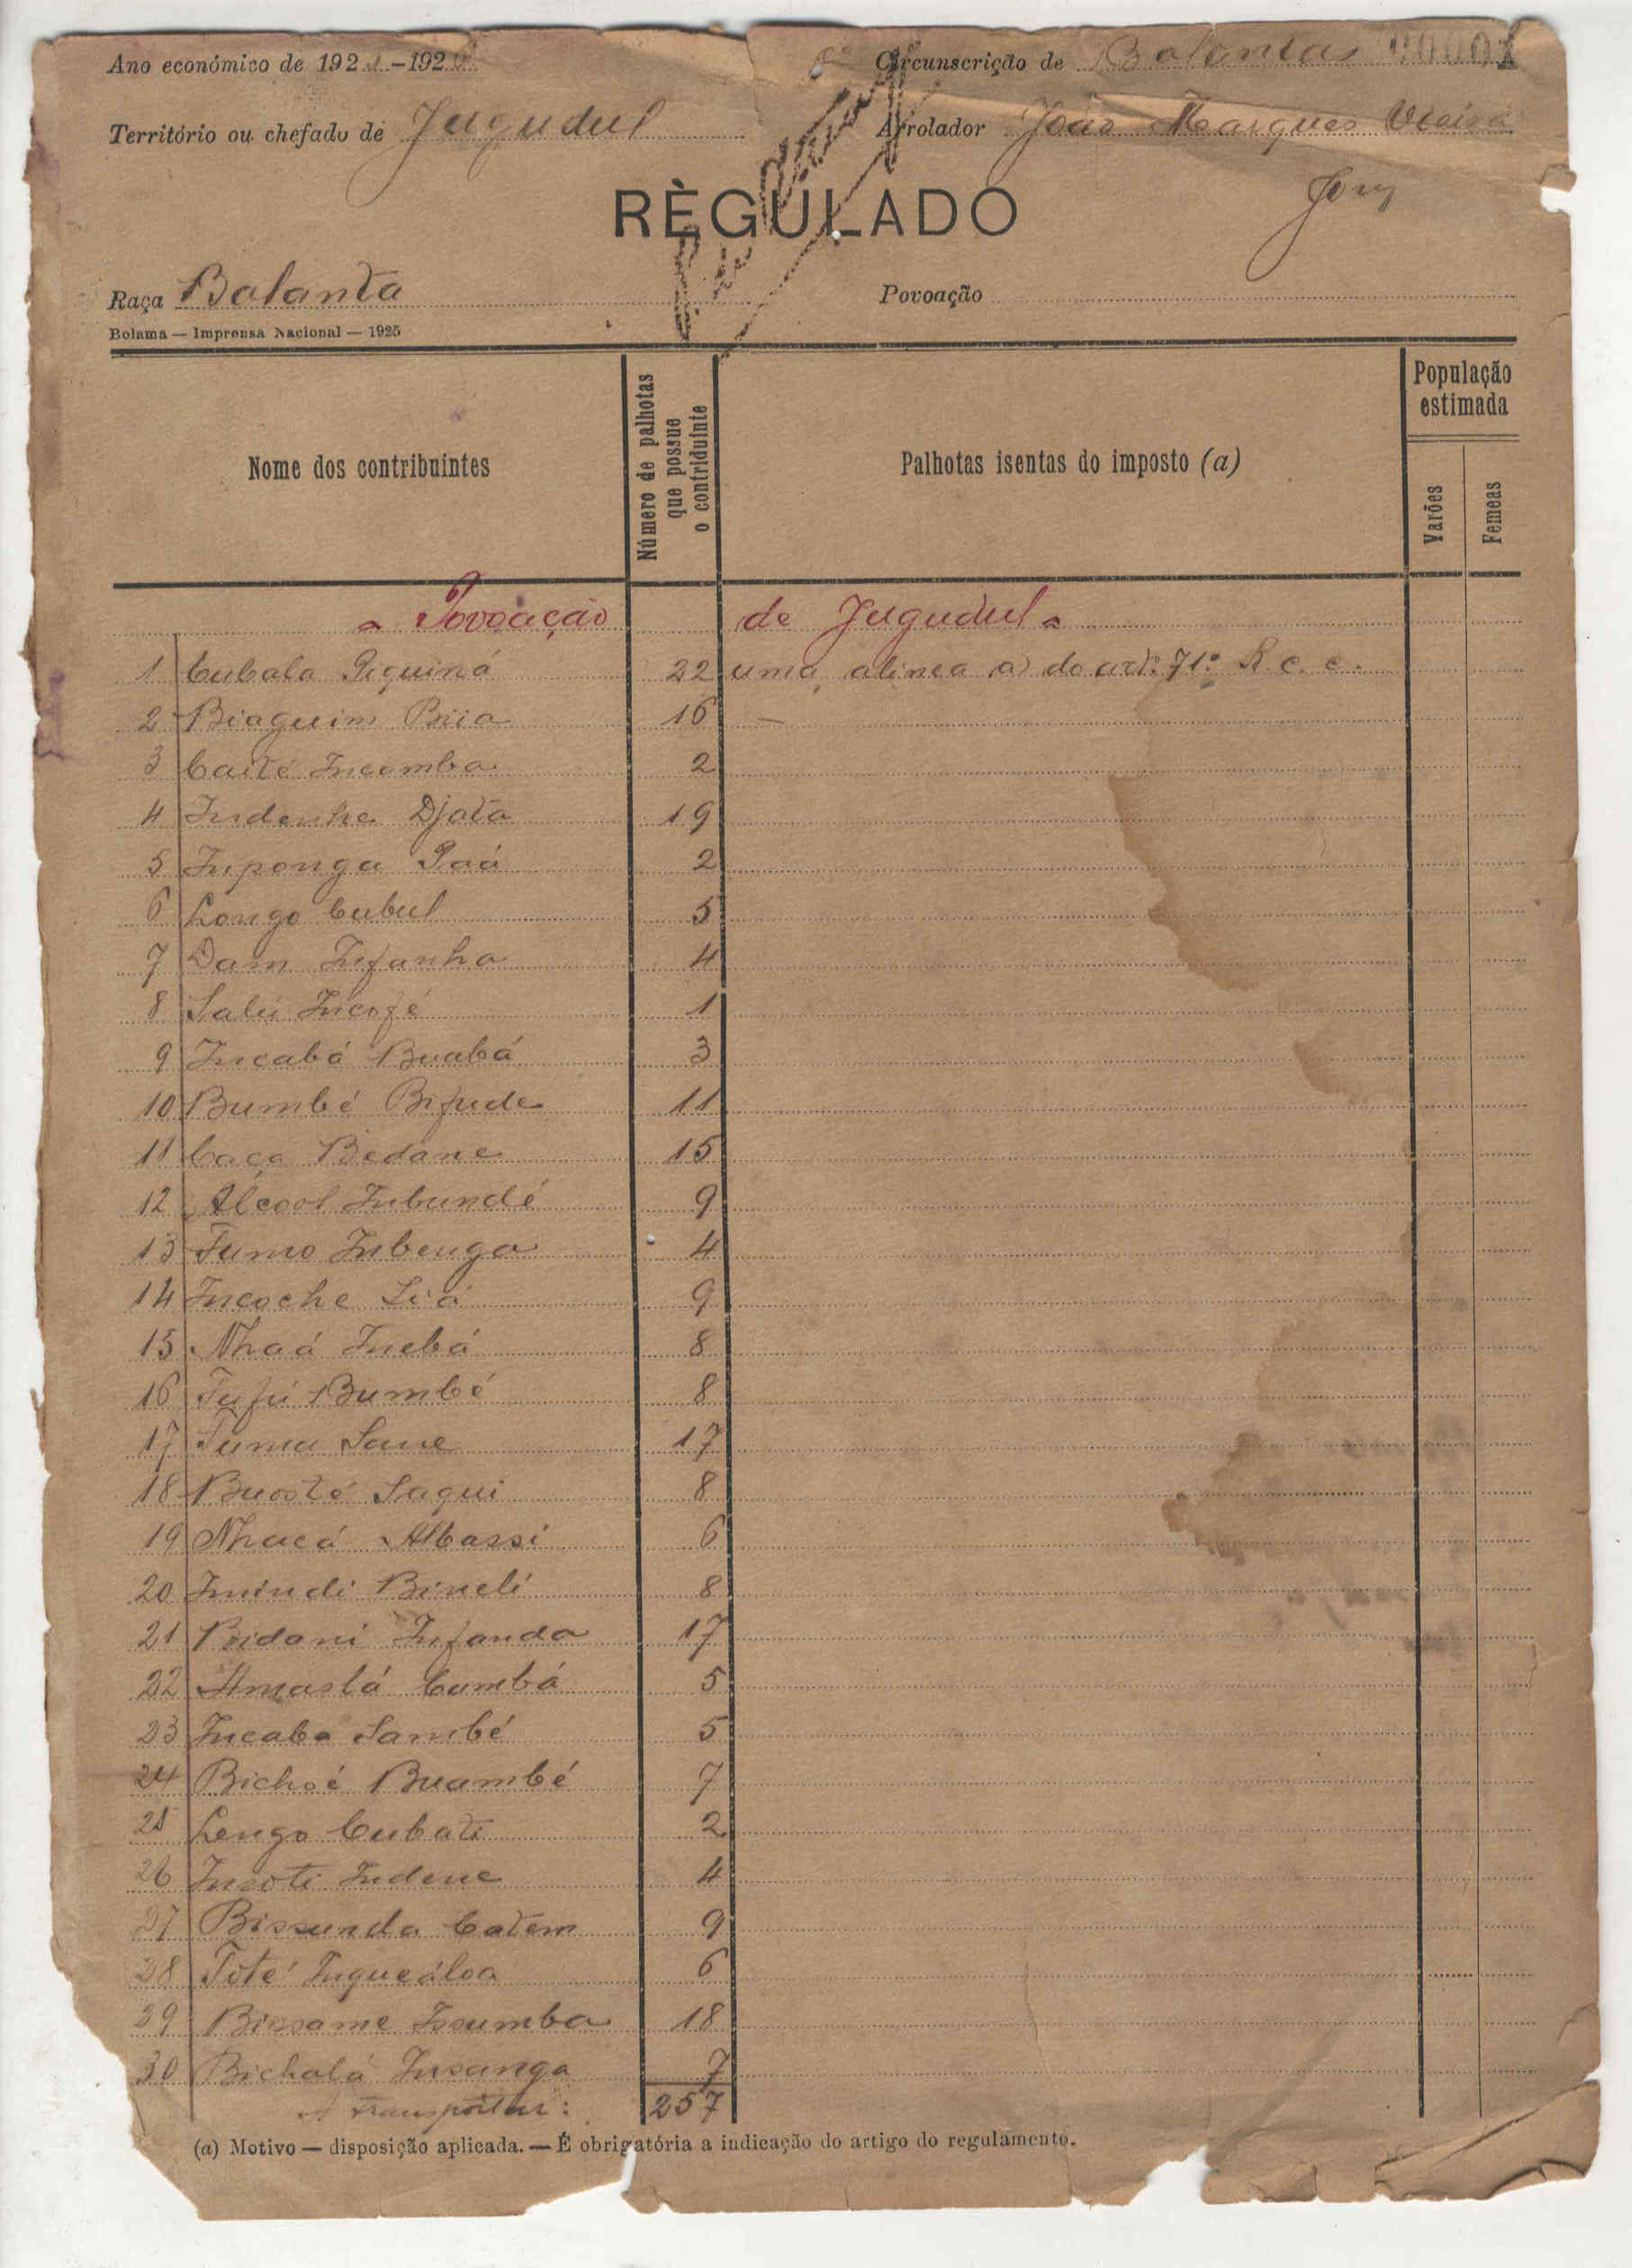 Ano económico de 192 -192
Circunscrição de Balantas
Território ou chefado de Jugudul
Arrolador João Marques Vieira
RÈGULADO
Raça Balanta
Povoação
Bolama — Imprensa Nacional — 1925
Nome dos contribuintes
Número de palhotas que possue o contriduinte
Palhotas isentas do imposto (a)
População estimada
Varões
Femeas
Povoação de Jugudul
1 Cubala Piquiná 22 uma, alinea a) do artº 71º R. c. c.
2 Biaguim Biia 16 —
3 Caité Incomba 2
4 Indenhe Djata 19
5 Inponga Paá 2
6 Longo Cubul 5
7 Dam Infanha 4
8 Salú Incofé 1
9 Incabá Buabá 3
10 Bumbé Bifude 11
11 Caça Bedane 15
12 Alcool Inbundé 9
13 Fumo Inbenga 4
14 Incoche Liá 9
15 Nhaá Inebá 8
16 Fufú Bumbé 8
17 Tuma Sane 17
18 Buosté Saqui 8
19 Nhacá Albassi 6
20 Inindi Bineli 8
21 Bidani Infanda 17
22 Amaslá Cumbá 5
23 Incaba Sambé 5
24 Bichoé Buambé 7
25 Lengo Cubati 2
26 Insoti Indene 4
27 Bissunda Catem 9
28 Toté Inqueáloa 6
29 Bissame Issumba 18
30 Bichalá Insanga 7
A transportar: 257
(a) Motivo — disposição aplicada. — É obrigatória a indicação do artigo do regulamento.